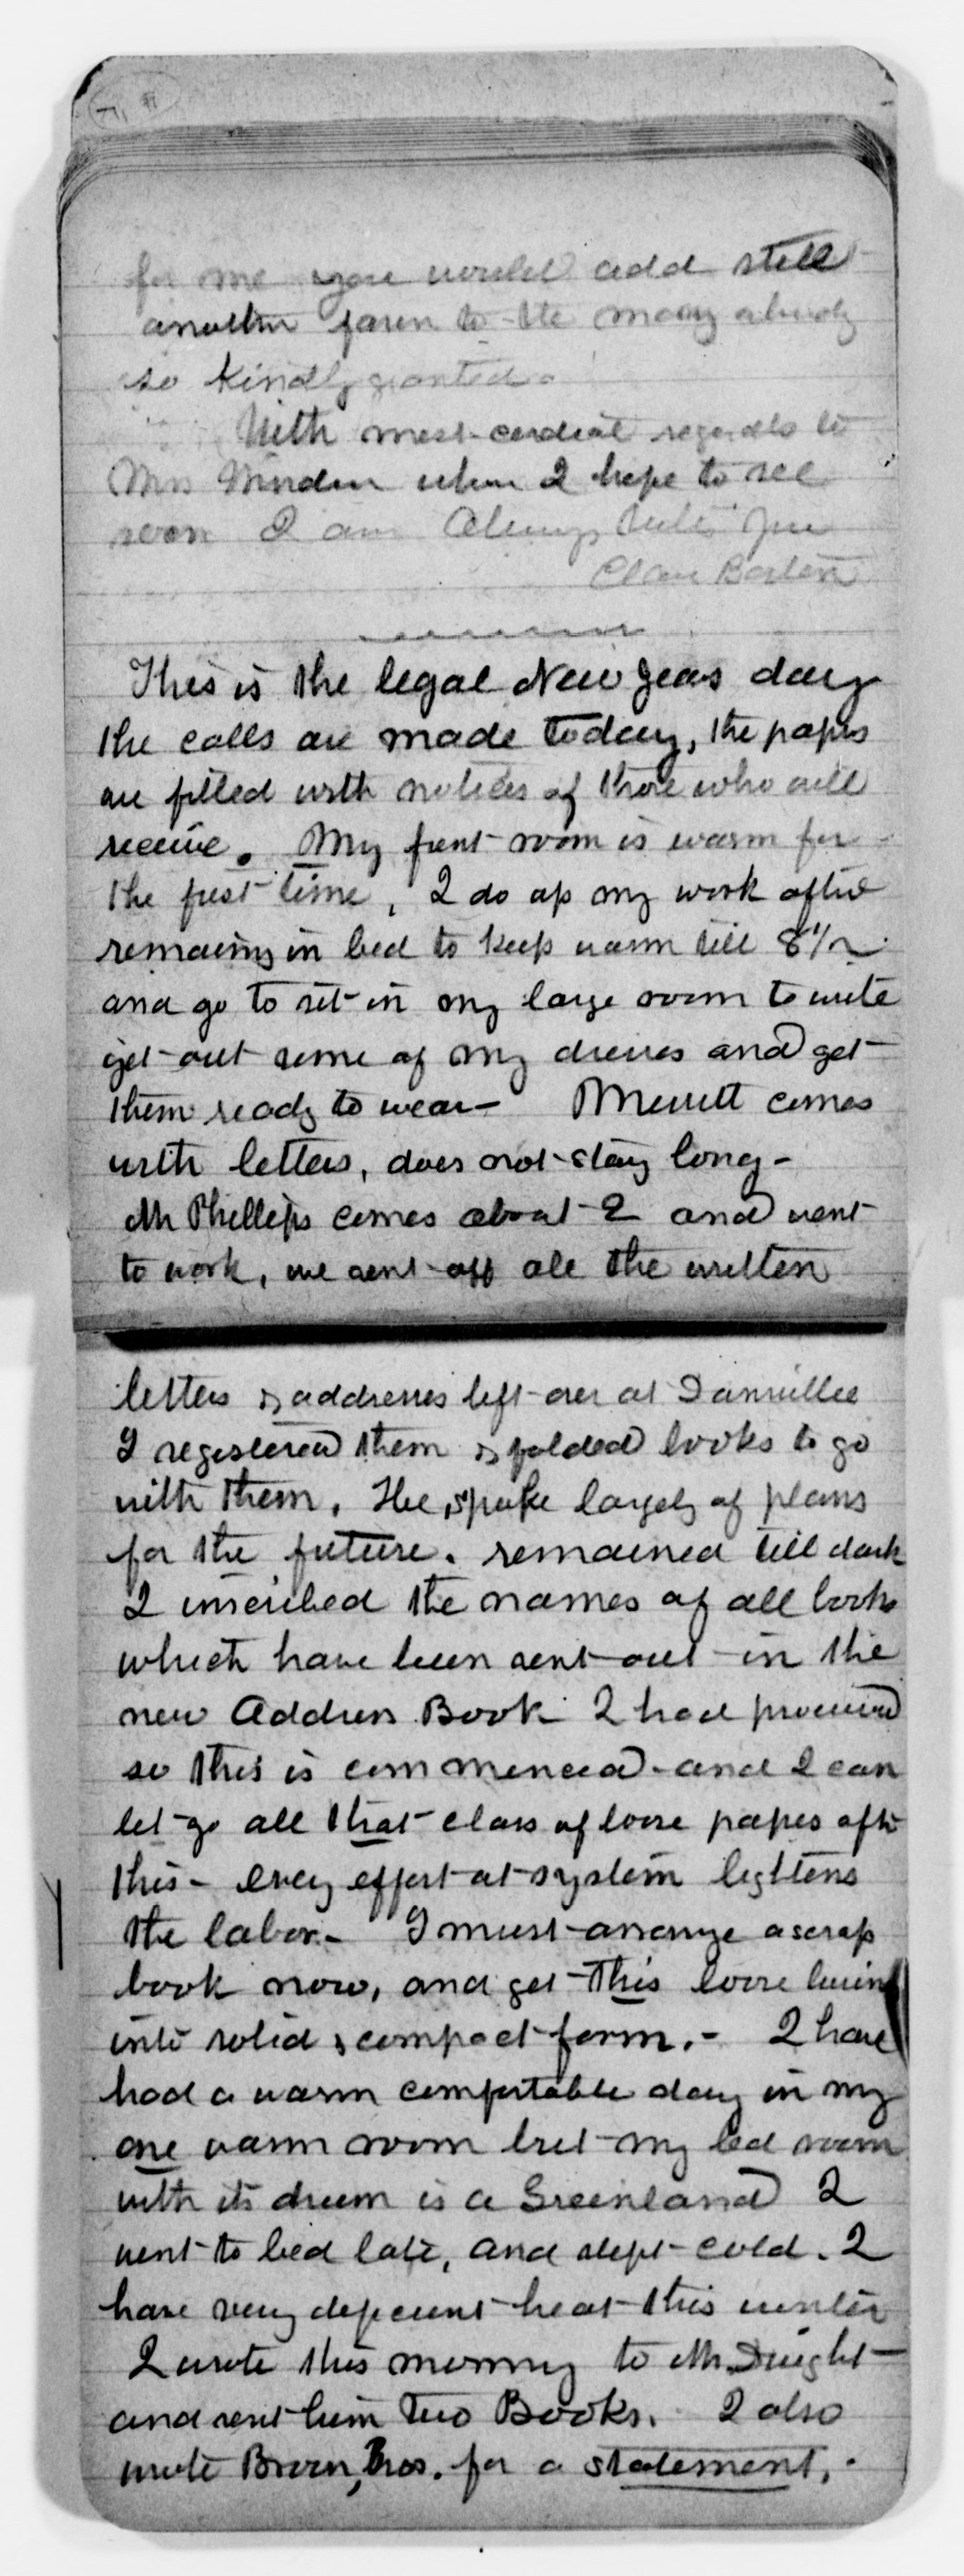 for me you would add still
another favor to the many already
so kindly granted.
With most cordial regards to
Mrs when I hope to see
soon I am Always truly yrs
Clara Barton
This is the legal New Years day
the calls are made today, the papers
are filled with notices of those who will
receive. My front room is warm for
the first time, I do up my work after
remaining in bed to keep warm till 8 1/2
and go to sit in my large room to write
get out some of my dresses and get
them ready to wear - Merritt comes
with letters, does not stay long -
Mr Phillips comes about 2 and went
to work, we sent off all the written
letters & addresses left over at Dansville
I registered them & folded books to go
with them. He spoke largely of plans
for the future. remained till dark
I inscribed the names of all books
which have been sent out in the
new Address Book I had procured
so this is commenced - and I can
let go all that class of loose papers after
this - every effort at system lightens
the labor. - I must arrange a scrap
book now, and get this loose being
into solid & compact form. - I have
had a warm comfortable day in my
one warm room but my bed room
with its drum is a Greenland I
went to bed late, and slept cold. I
have very deficient heat this winter
I wrote this morning to Mr. Dwight
and sent him two Books. I also
wrote Brown, Bros. for a statement. -